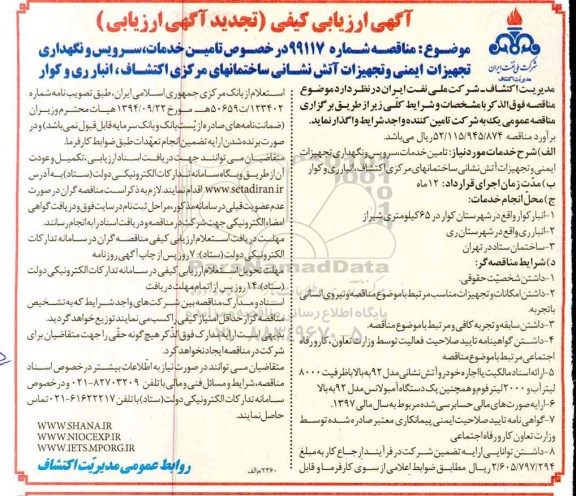 آگهی ارزیابی کیفی (تجدید آگهی ارزیابی)
موضوع: مناقصه شماره ۹۹۱۱۷ در خصوص تامین خدمات، سرویس و نگهداری
تجهیزات ایمنی و تجهیزات آتش نشانی ساختمانهای مرکزی اکتشاف، انبار ری و کوار
شرکت ملی نفت ایران
مدیریت اکتشاف
مدیریت اکتشاف ـ شرکت ملی نفت ایران در نظر دارد موضوع
مناقصه فوق الذکر با مشخصات و شرایط کلّی زیر از طریق برگزاری
مناقصه عمومی یک به شرکت تامین کننده واجد شرایط واگذار نماید.
برآورد مناقصه ۵۲/۱۱۵/۹۴۵/۸۷۴ ریال می باشد.
الف) شرح خدمات مورد نیاز: تامین خدمات، سرویس و نگهداری تجهیزات
ایمنی و تجهیزات آتش نشانی ساختمانهای مرکزی اکتشاف، انبار ری و کوار
ب) مدّت زمان اجرای قرارداد: ۱۲ ماه
ج) محلّ انجام خدمات:
۱-انبار کوار واقع در شهرستان کوار در ۶۵ کیلومتری شیراز
۲-انبار ری واقع در شهرستان ری
۳-ساختمان ستاد در تهران
د) شرایط مناقصه گر:
۱-داشتن شخصیّت حقوقی.
۲-داشتن امکانات و تجهیزات مناسب مرتبط با موضوع مناقصه و نیروی انسانی
با تجربه.
۳-داشتن سابقه و تجربه کافی و مرتبط با موضوع مناقصه.
۴-داشتن گواهینامه تایید صلاحیت فعالیت توسط وزارت تعاون، کار و رفاه
اجتماعی مرتبط با موضوع مناقصه
۵-ارائه اسناد مالکیت یا اجاره خودرو آتش نشانی مدل ۹۲ به بالا با ظرفیت ۸۰۰۰
لیتر آب و ۲۰۰۰ لیتر فوم و همچنین یک دستگاه آمبولانس مدل ۹۲ به بالا
۶-ارایه صورت های مالی حسابرسی شده مربوط به سال مالی ۱۳۹۷.
۷-گواهی نامه تایید صلاحیت ایمنی پیمانکاری معتبر صادره شده توسط
وزارت تعاون و کار و رفاه اجتماعی
۸-داشتن توانایی ارایه تضمین شرکت در فرآیند ارجاع کار به مبلغ
۲/۶۰۵/۷۹۷/۲۹۴ ریال مطابق ضوابط اعلامی از سوی کارفرما و قابل
استعلام از بانک مرکزی جمهوری اسلامی ایران، طبق تصویب نامه شماره
۱۲۳۴۰۲/ت۵۰۶۵۹هـ مورخ ۱۳۹۴/۰۹/۲۲ هیات محترم وزیران
(ضمانت نامه های صادره از پُست بانک و بانک سرمایه قابل قبول نمی باشد) و در
صورت برنده شدن ارایه تضمین انجام تعهّدات طبق ضوابط کارفرما.
متقاضیان می توانند جهت دریافت اسناد ارزیابی، تکمیل و عودت
آن از طریق وبگاه سامانه تدارکات الکترونیکی دولت (ستاد) به آدرس
www.setadiran.ir اقدام نمایند. لازم به ذکر است مناقصه گران در صورت
عدم عضویت قبلی در سامانه مذکور، مراحل ثبت نام در سایت فوق و دریافت گواهی
امضاء الکترونیکی جهت شرکت در مناقصه و دریافت اسناد را به انجام رسانند.
مهلت دریافت استعلام ارزیابی کیفی مناقصه گران در سامانه تدارکات
الکترونیکی دولت (ستاد): ۷ روز پس از چاپ آگهی روزنامه
مهلت تحویل استعلام ارزیابی کیفی در سامانه تدارکات الکترونیکی دولت
(ستاد): ۱۴ روز پس از اتمام مهلت دریافت
اسناد و مدارک مناقصه بین شرکت های واجد شرایط که به تشخیص
مناقصه گزار حداقل امتیاز کیفی را کسب می نمایند توزیع خواهد گردید.
بدیهی است ارایه مدارک فوق الذکر هیچ گونه حقّی را جهت متقاضیان برای
شرکت در مناقصه ایجاد نخواهد کرد.
متقاضیان می توانند در صورت نیاز به اطّلاعات بیشتر در خصوص اسناد
مناقصه، شرایط و مسائل فنی و مالی با تلفن ۸۲۷۰۳۲۰۹-۰۲۱ و در خصوص
سامانه تدارکات الکترونیکی دولت (ستاد) با تلفن ۶۱۶۲۲۲۱۷-۰۲۱ تماس
حاصل نمایند.
WWW.SHANA.IR
WWW.NIOCEXP.IR
WWW.IETS.MPORG.IR
۲۳۶۰/م الف
روابط عمومی مدیریّت اکتشاف
ParsNamadData
پایگاه اطلاع رسانی مناقصه و مزایده